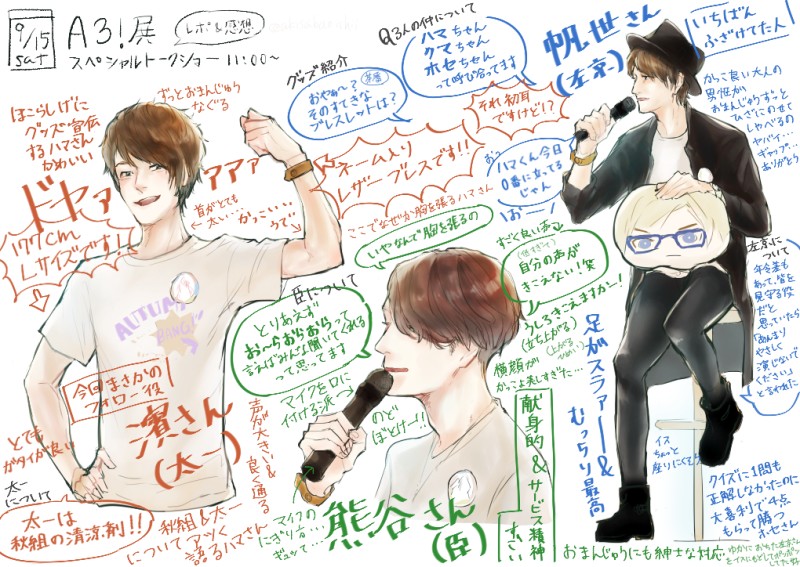 9/15
sat
A3!展
レポ&感想
スペシャルトークショー 11:00〜
ほこらしげに
グッズ宣伝
するハマさん
かわいい
ずっとおまんじゅう
なぐる
ドヤァ
アアア
177cm
Lサイズです!!
首がとても
太い……
かっこいい
うで
ALTUAL
BANG!
今回まさかの
フォロー役
濱さん
(太一)
とても
ガタイが良い
声が大きい&
良く通る
太一について
太一は
秋組の清涼剤!!
秋組&太一
についてアツく
語るハマさん
グッズ紹介
おやぁ〜?
そのすてきな
ブレスレットは?
ネーム入り
レザーブレスです!!
ここでなぜか胸を張るハマさん
いやなんで胸を張るの
3人の件について
ハマちゃん
クマちゃん
ホセちゃん
って呼び合ってます
それ初耳
ですけど!?
おっ
ハマくん今日
0番に立ってる
じゃん
臣について
とりあえず
お〜らおらおらって
言えばみんな聞いてくれる
って思ってます
マイクを口に
付ける派
のど
ぼとけー!!
マイクの
にぎり方…
ギュッて…
熊谷さん
(臣)
すごく良い声
(低すぎて)
自分の声が
きこえない!笑
うしろきこえますかー!
(立ち上がる)
横顔が
かっこよ美しすぎた…
献身的&サービス精神
すごい
帆世さん
(左京)
いちばん
ふざけてた人
かっこ良い大人の
男性が
おまんじゅうずっと
ひざにのせて
しゃべるの
ヤバイ…
ギャップ…
ありがとう
左京に
ついて
年令差も
あって、皆を
見守る役
だと
思っていたら
「あんまり
やさしく
演じないで
ください」
と言われた
足がスラァー&
むっちり最高
イス
ちょっと
座りにくそう
クイズに1問も
正解しなかったのに
大喜利で4点
もらって勝つ
ホセさん
おまんじゅうにも紳士な対応